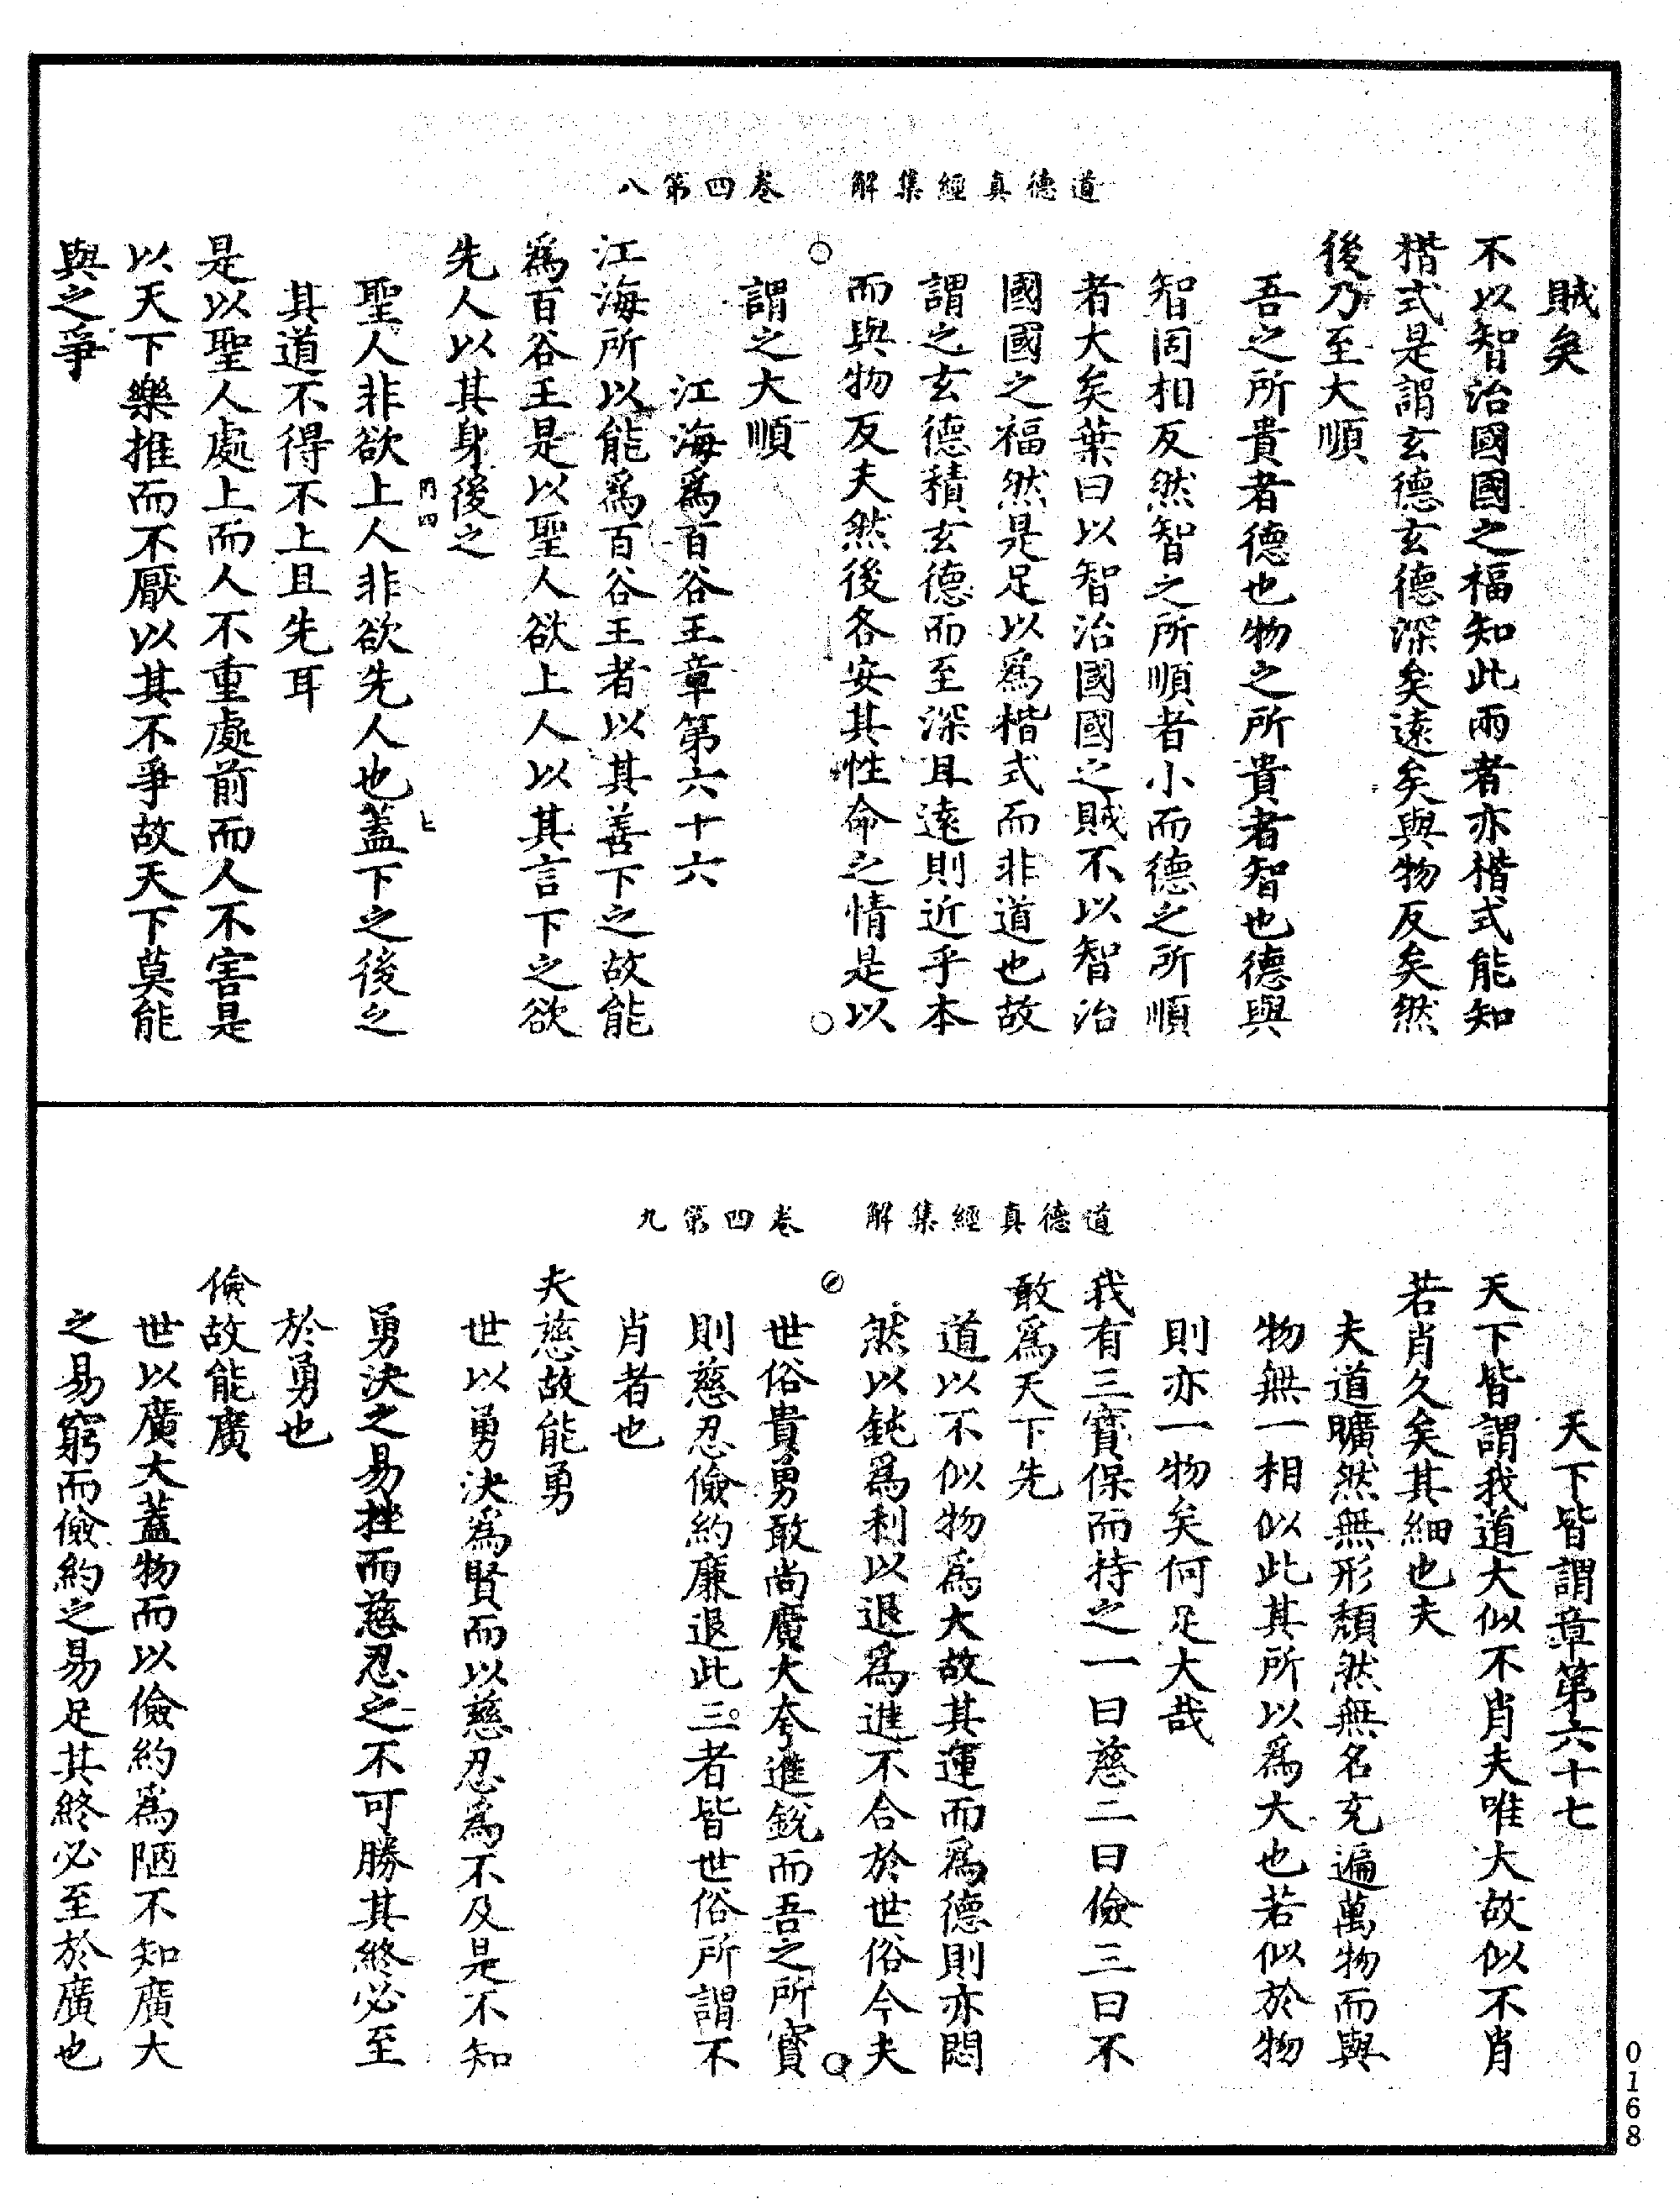 道德真經集解　卷四第八
賊矣
不以智治國國之福知此兩者亦楷式能知
楷式是謂玄德玄德深矣遠矣與物反矣然
後乃至大順
吾之所貴者德也物之所貴者智也德與
智固相反然智之所順者小而德之所順
者大矣葉曰以智治國國之賊不以智治
國國之福然是足以爲楷式而非道也故
謂之玄德積玄德而至深且遠則近乎本
而與物反夫然後各安其性命之情是以
謂之大順
江海爲百谷王章第六十六
江海所以能爲百谷王者以其善下之故能
爲百谷王是以聖人欲上人以其言下之欲
先人以其身後之
聖人非欲上人非欲先人也蓋下之後之
其道不得不上且先耳
是以聖人處上而人不重處前而人不害是
以天下樂推而不厭以其不爭故天下莫能
與之爭
道德真經集解　卷四第九
天下皆謂章第六十七
天下皆謂我道大似不肖夫唯大故似不肖
若肖久矣其細也夫
夫道曠然無形頹然無名充遍萬物而與
物無一相似此其所以爲大也若似於物
則亦一物矣何足大哉
我有三寶保而持之一曰慈二曰儉三曰不
敢爲天下先
道以不似物爲大故其運而爲德則亦悶
然以鈍爲利以退爲進不合於世俗今夫
世俗貴勇敢尚廣大夸進銳而吾之所寶
則慈忍儉約廉退此三者皆世俗所謂不
肖者也
夫慈故能勇
世以勇決爲賢而以慈忍爲不及是不知
勇決之易挫而慈忍之不可勝其終必至
於勇也
儉故能廣
世以廣大蓋物而以儉約爲陋不知廣大
之易窮而儉約之易足其終必至於廣也
0168